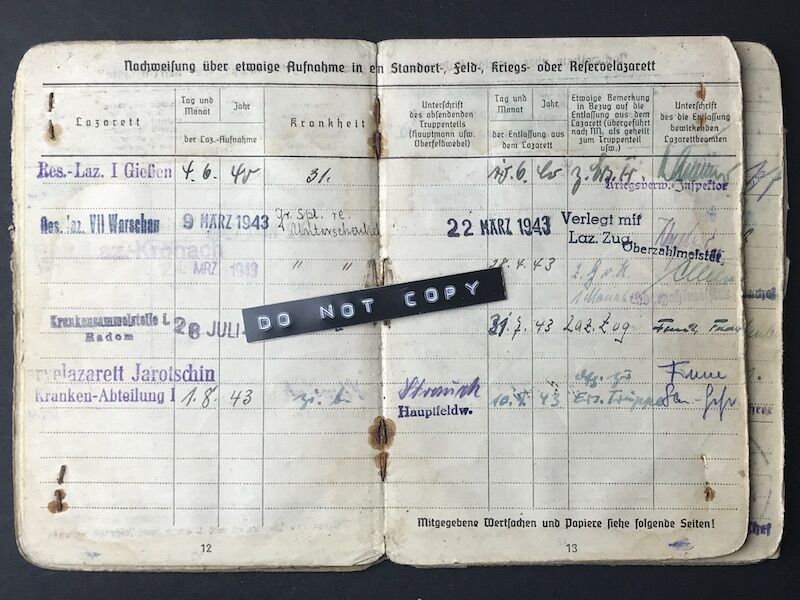 Nachweisung über etwaige Aufnahme in ein Standort-, Feld-, Kriegs- oder Reservelazarett
Lazarett
Tag und Monat
Jahr
der Laz.-Aufnahme
Krankheit
Unterschrift des absendenden Truppenteils (Hauptmann usw. Oberfeldwebel)
Tag und Monat
Jahr
der Entlassung aus dem Lazarett
Etwaige Bemerkung in Bezug auf die Entlassung aus dem Lazarett (übergeführt nach NN. als geheilt zum Truppenteil usw.)
Unterschrift des die Entlassung bewirkenden Lazarettbeamten
Res.-Laz. I Gießen 4. 6. 40 31. 6. 40
Kriegsverw.-Inspektor
Res. Laz. VII Warschau 9 MÄRZ 1943 Gr. Spl. re. Unterschenkel 22 MÄRZ 1943 Verlegt mit Laz. Zug
Oberzahlmeister
Laz. Kronach MRZ 1943 " " 28. 4. 43
Krankensammelstelle i. Radom 28 JULI 31. 7. 43 Laz. Zug
DO NOT COPY
Jarotschin
Kranken-Abteilung I 1. 8. 43 Strauch Hauptfeldw. 43 Ers. Truppe
Mitgegebene Wertsachen und Papiere siehe folgende Seiten!
12
13